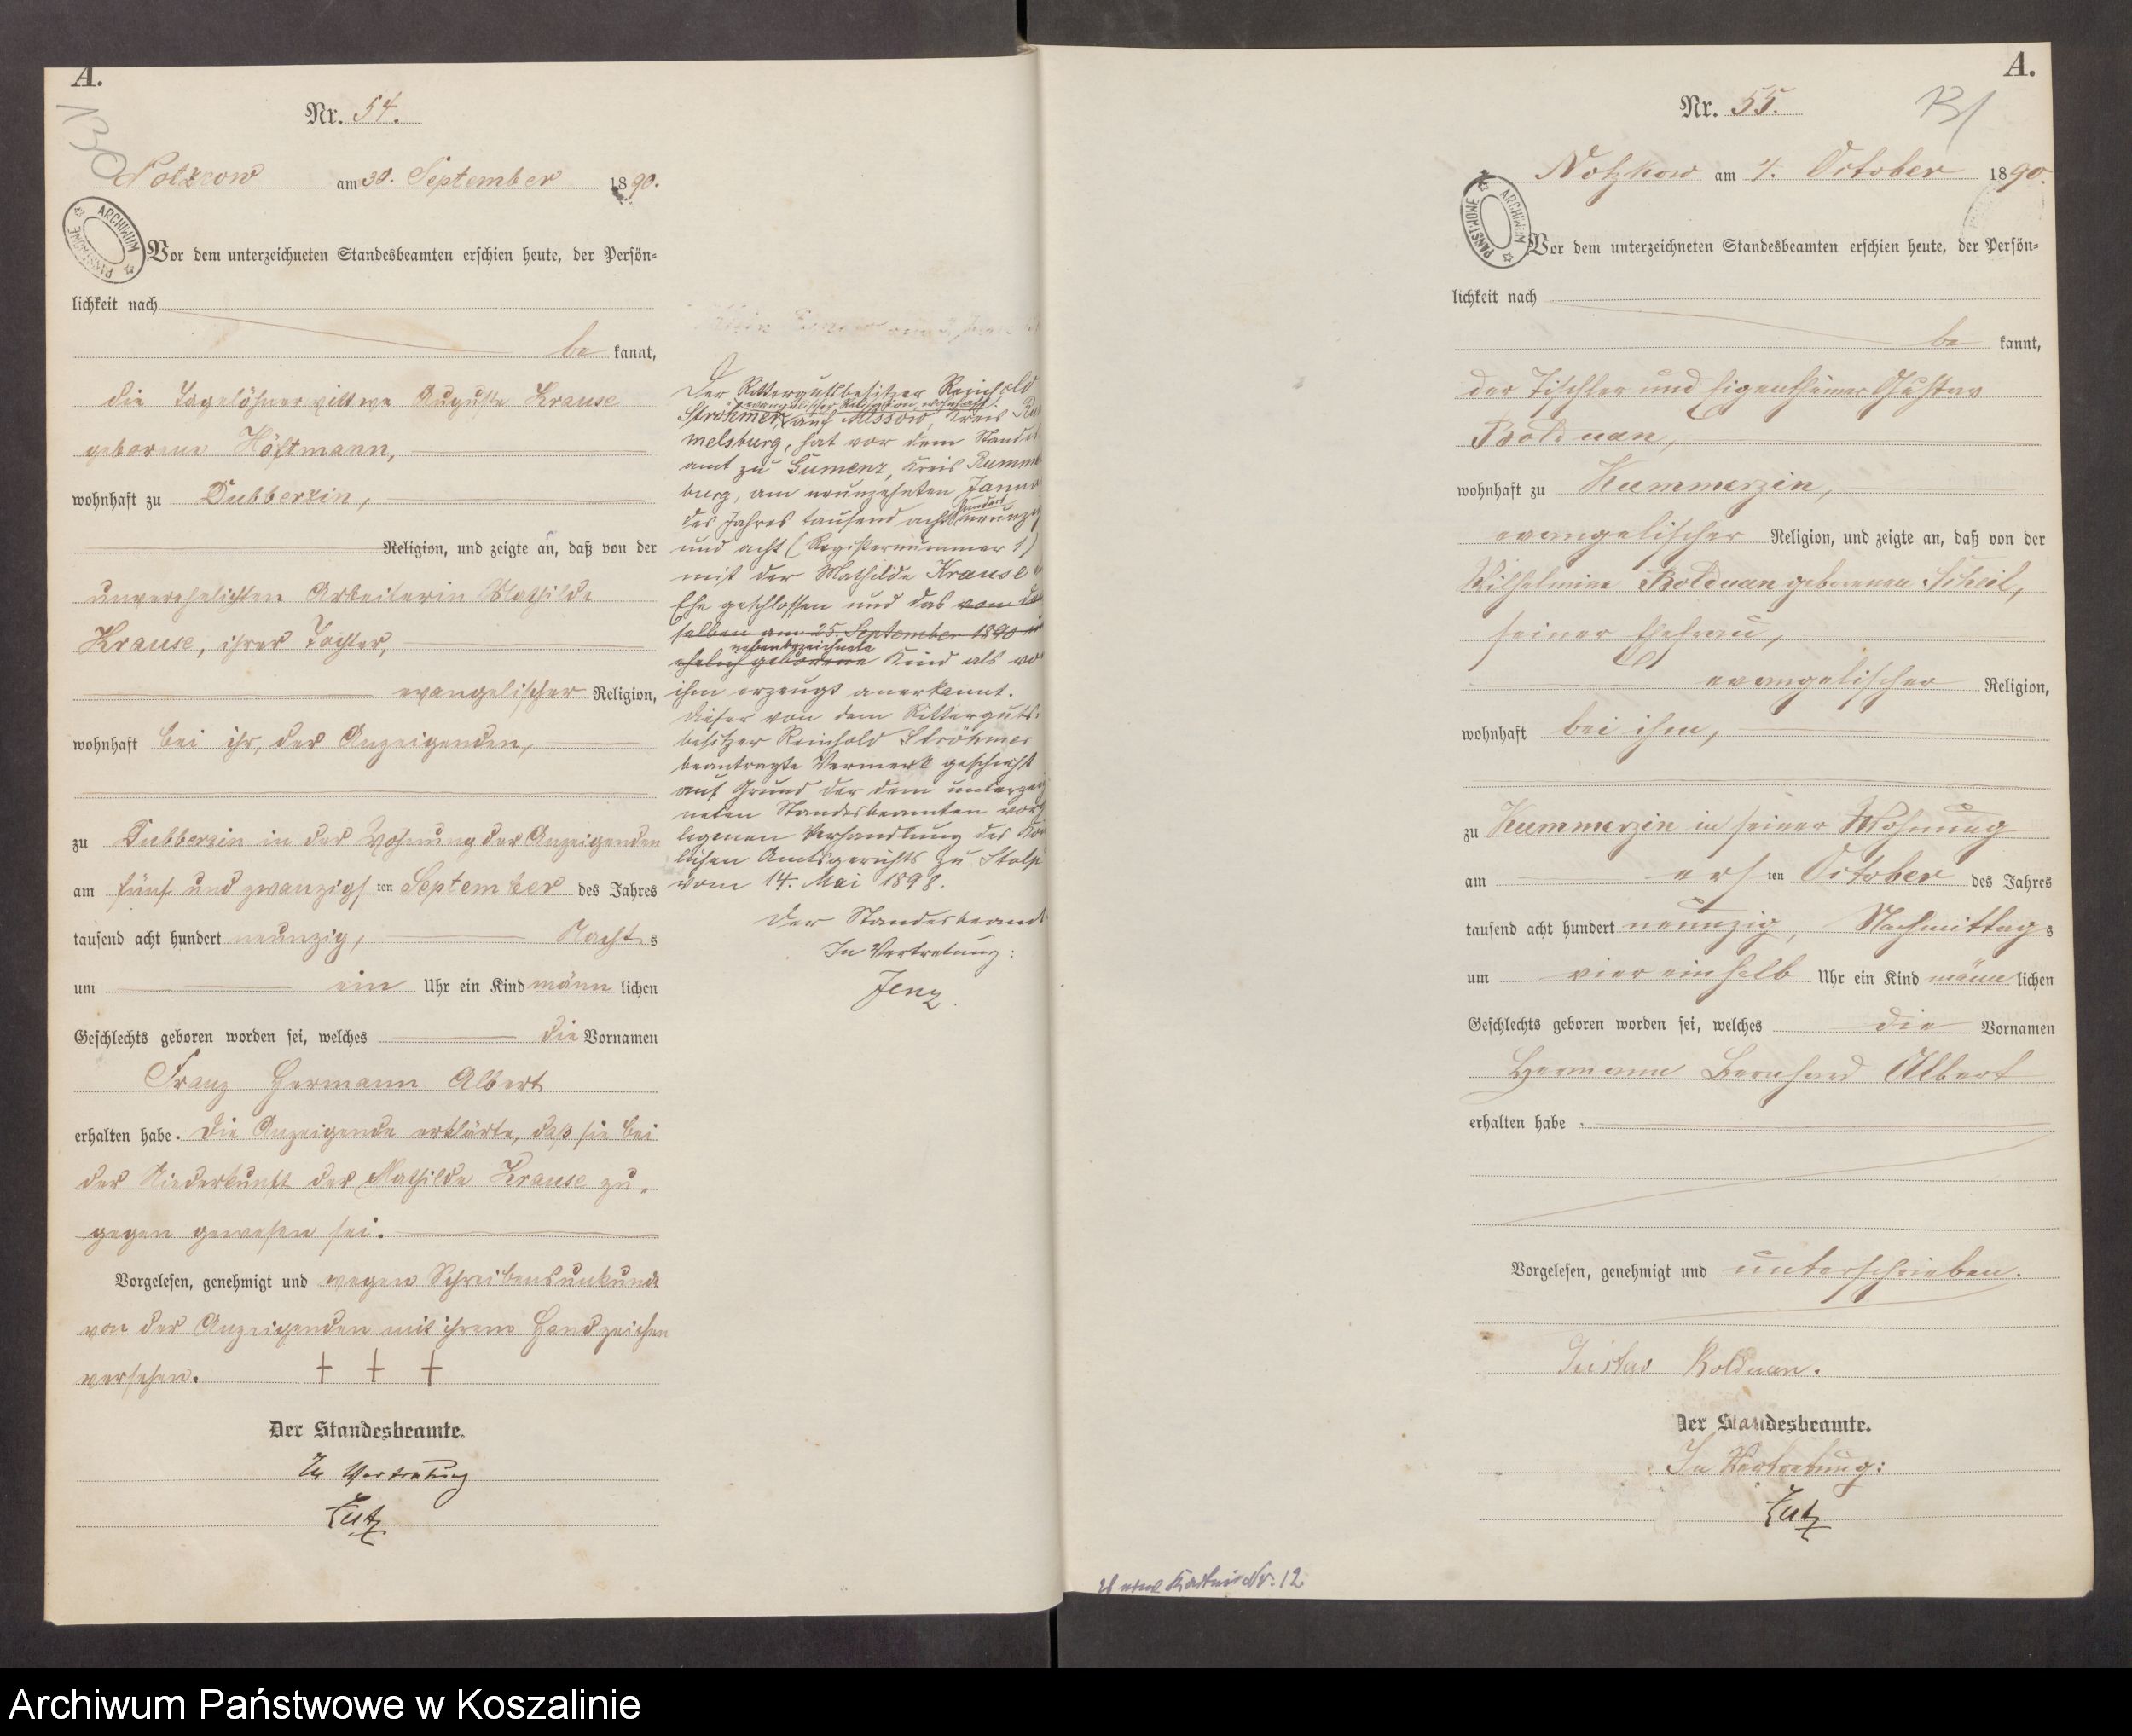 A.
130
Nr. 54.
Notzkow am 30. September 1890.
ARCHIWUM PAŃSTWOWE
Vor dem unterzeichneten Standesbeamten erschien heute, der Persön-
lichkeit nach
be kannt,
die Tagelöhnerwittwe Auguste Krause
geborene Höftmann,
wohnhaft zu Dubberzin,
Religion, und zeigte an, daß von der
unverehelichten Arbeiterin Mathilde
Krause, ihrer Tochter,
evangelischer Religion,
wohnhaft bei ihr, der Anzeigenden,
zu Dubberzin in der Wohnung der Anzeigenden
am fünf und zwanzigsten September des Jahres
tausend acht hundert neunzig, Nachts
um ein Uhr ein Kind männlichen
Geschlechts geboren worden sei, welches die Vornamen
Franz Hermann Albert
erhalten habe. Die Anzeigende erklärte, daß sie bei
der Niederkunft der Mathilde Krause zu-
gegen gewesen sei.
Vorgelesen, genehmigt und wegen Schreibensunkunde
von der Anzeigenden mit ihrem Handzeichen
versehen. + + +
Der Standesbeamte.
In Vertretung
Lutz
Der Rittergutsbesitzer Reinhold
evangelischer Religion, wohnhaft
Ströhmer, auf Missow, Kreis Rum
melsburg, hat vor dem Standes
amt zu Gumenz, Kreis Rummels
burg, am neunzehnten Janua
hundert
des Jahres tausend acht neunzig
und acht (Registernummer 1)
mit der Mathilde Krause
Ehe geschlossen und das von der
selben am 25. September 1890
nebenbezeichnete
ehelich geborene Kind als vo
ihm erzeugt anerkannt.
Dieser von dem Ritterguts-
besitzer Reinhold Ströhmer
beantragte Vermerk geschieht
auf Grund der dem unterzeich
neten Standesbeamten vorge
legenen Verhandlung des König
lichen Amtsgerichts zu Stolp
vom 14. Mai 1898.
Der Standesbeamte
In Vertretung:
Jenz.
A.
131
Nr. 55.
Notzkow am 4. October 1890.
ARCHIWUM PAŃSTWOWE
Vor dem unterzeichneten Standesbeamten erschien heute, der Persön-
lichkeit nach
be kannt,
der Tischler und Eigenthümer Gustav
Bolduan,
wohnhaft zu Kummerzin,
evangelischer Religion, und zeigte an, daß von der
Wilhelmine Bolduan geborenen Scheil,
seiner Ehefrau,
evangelischer Religion,
wohnhaft bei ihm,
zu Kummerzin in seiner Wohnung
am ersten October des Jahres
tausend acht hundert neunzig, Nachmittags
um vier einhalb Uhr ein Kind männlichen
Geschlechts geboren worden sei, welches die Vornamen
Hermann Bernhard Albert
erhalten habe.
Vorgelesen, genehmigt und unterschrieben.
Gustav Bolduan.
Der Standesbeamte.
In Vertretung:
Lutz
Nr. 12
Archiwum Państwowe w Koszalinie